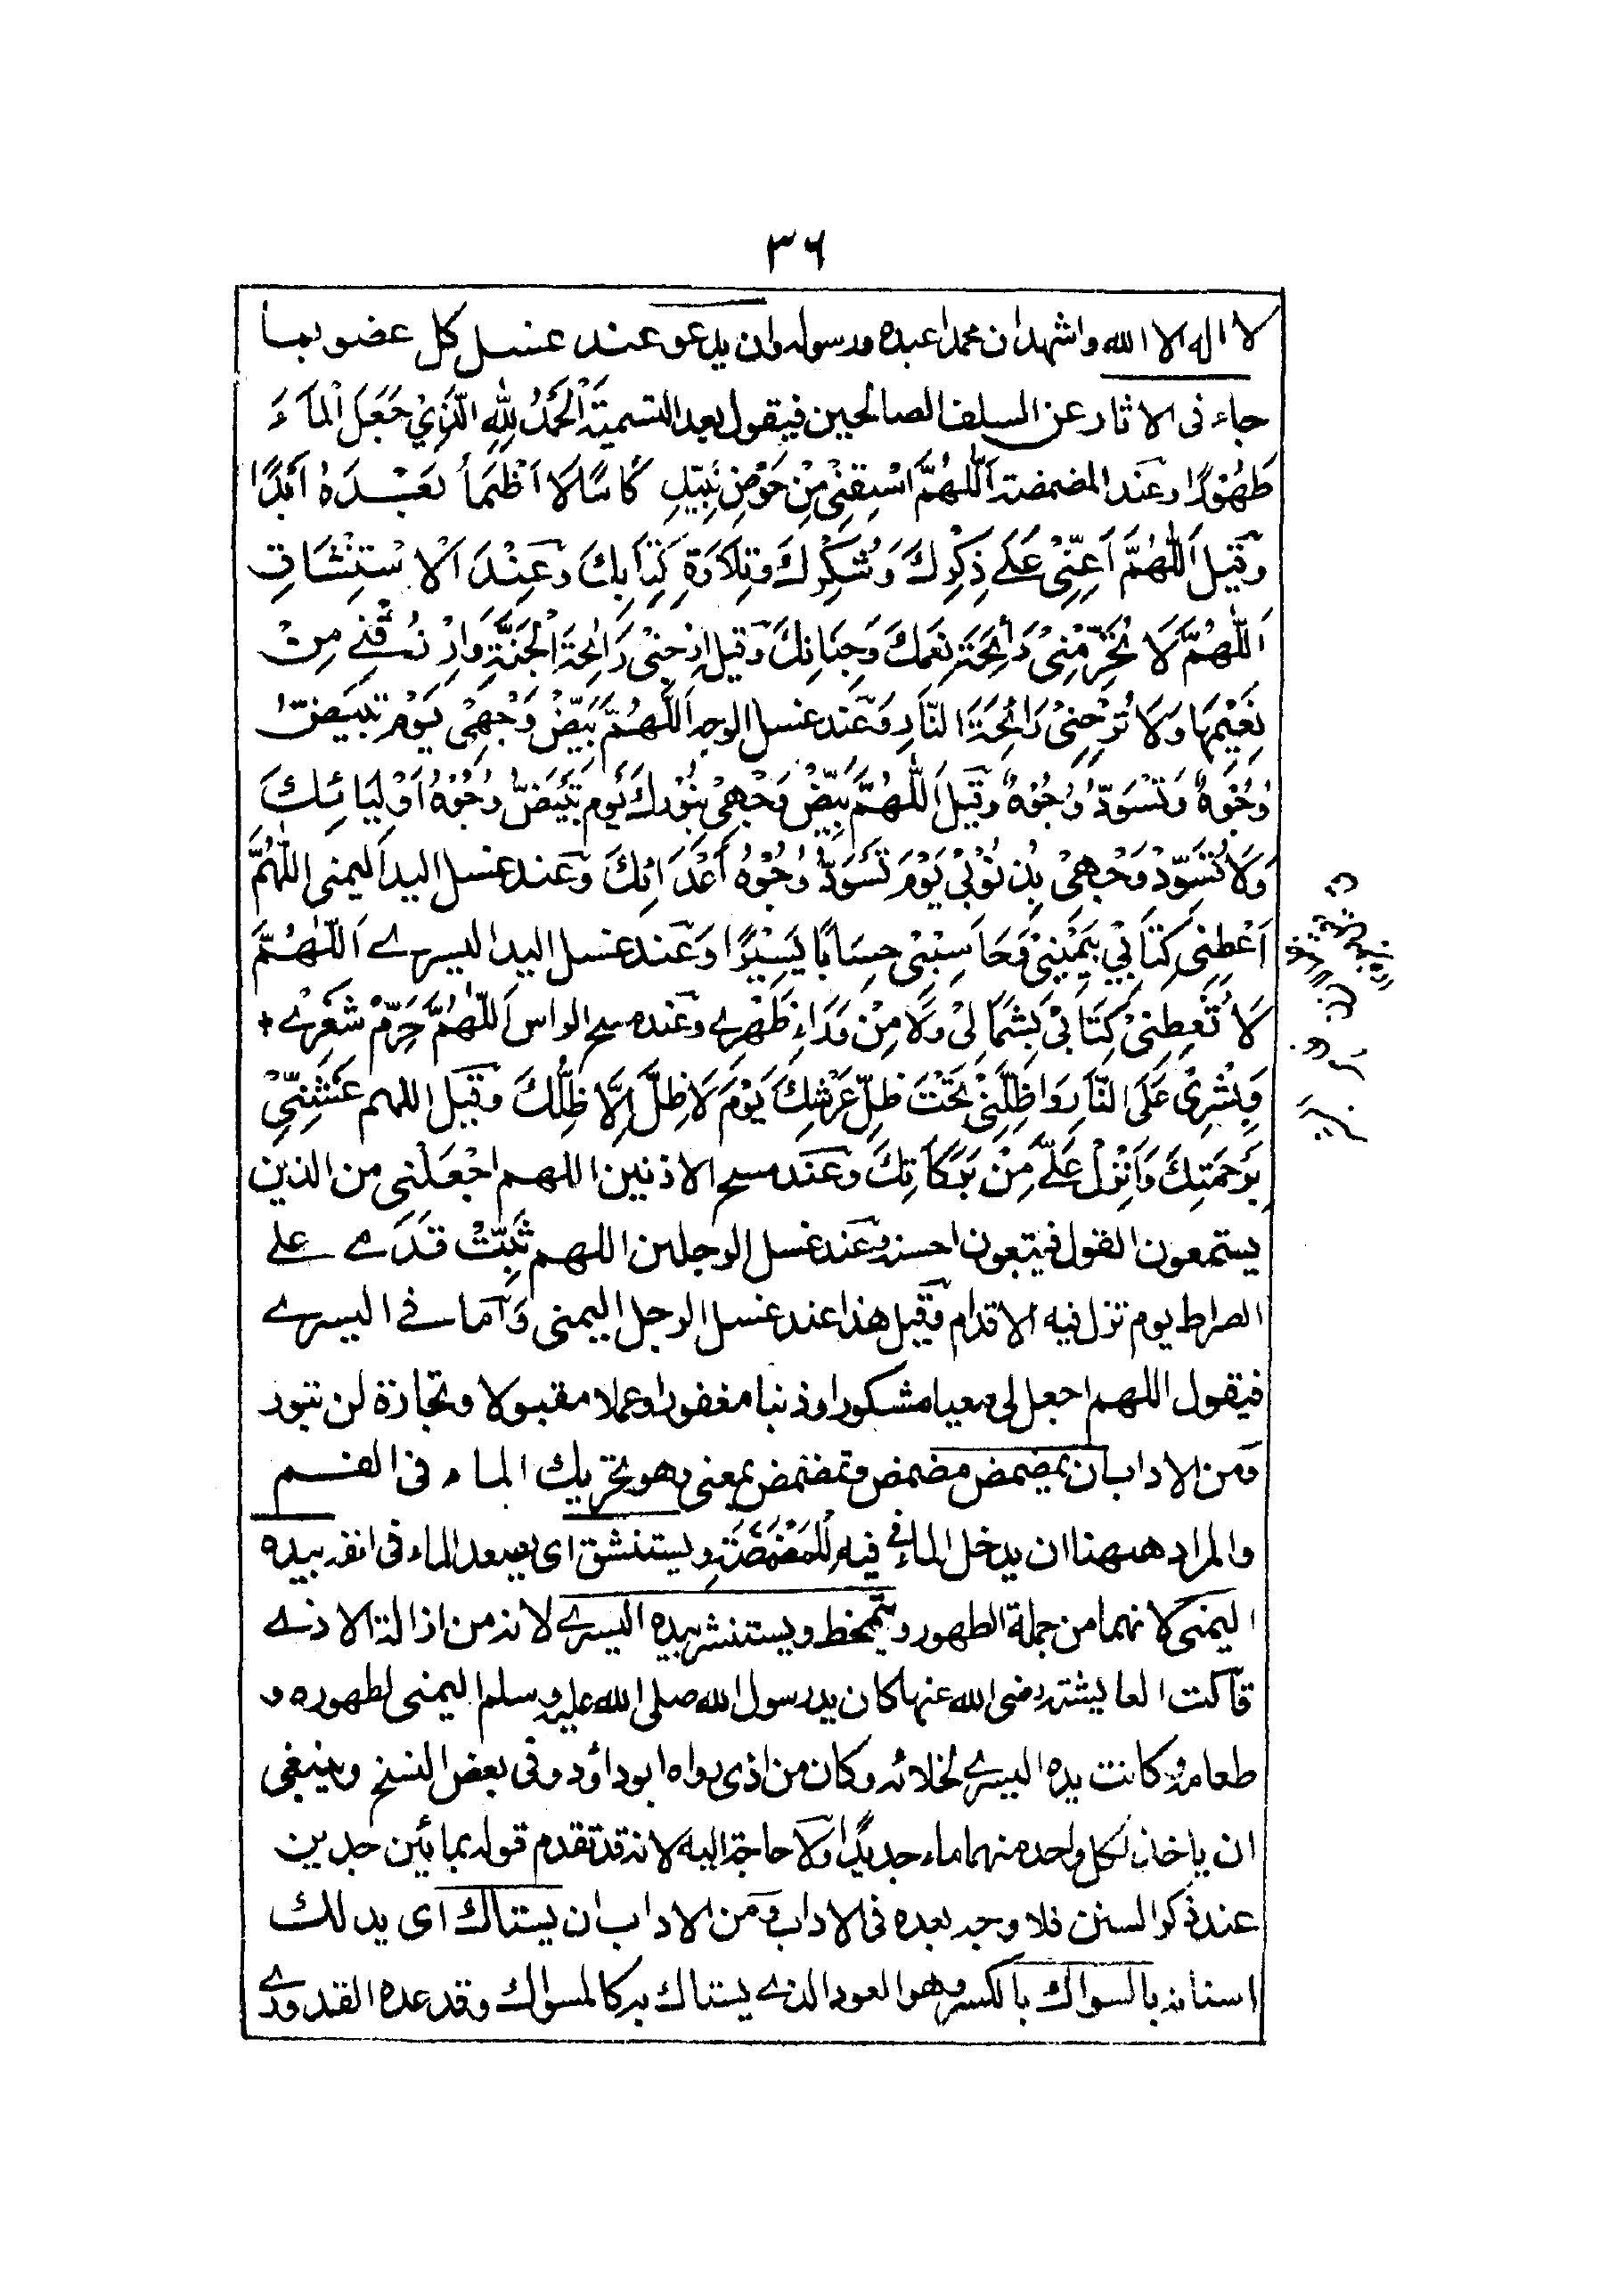 ٣٦
لا اله الا الله واشهد ان محمدا عبده ورسوله وان يدعو عند غسل كل عضو بما
جاء فى الاثار عن السلف الصالحين فيقول بعد التسمية اَلْحَمْدُ لِلّٰهِ الَّذِيْ جَعَلَ الْمَآءَ
طَهُوْرًا وعند المضمضة اَللّٰهُمَّ اسْقِنِيْ مِنْ حَوْضِ نَبِيِّكَ كَاسًا لَا اَظْمَأُ بَعْدَهُ اَبَدًا
وَقيل اَللّٰهُمَّ اَعِنِّيْ عَلٰے ذِكْرِكَ وَشُكْرِكَ وَتِلَاوَةِ كِتَابِكَ وَعِنْدَ الْاِسْتِنْشَاقِ
اَللّٰهُمَّ لَا تُحَرِّمْنِيْ رَائِحَةَ نِعَمِكَ وَجِنَانِكَ وَقيل اَرِحْنِيْ رَائِحَةَ الْجَنَّةِ وَارْزُقْنِے مِنْ
نَعِيْمِهَا وَلَا تُرِحْنِيْ رَائِحَةَ النَّارِ وَعند غسل الوجه اَللّٰهُمَّ بَيِّضْ وَجْهِيْ يَوْمَ تَبْيَضُّ
وُجُوْهٌ وَتَسْوَدُّ وُجُوْهٌ وَقيل اَللّٰهُمَّ بَيِّضْ وَجْهِيْ بِنُوْرِكَ يَوْمَ تَبْيَضُّ وُجُوْهُ اَوْلِيَائِكَ
وَلَا تُسَوِّدْ وَجْهِيْ بِذُنُوْبِيْ يَوْمَ تَسْوَدُّ وُجُوْهُ أَعْدَائِكَ وَعند غسل اليد اليمنى اللّٰهُمَّ
اَعْطِنِي كِتَابِيْ بِيَمِيْنِيْ وَحَاسِبْنِيْ حِسَابًا يَسِيْرًا وَعند غسل اليد اليسرے اَللّٰهُمَّ
لَا تُعْطِنِيْ كِتَابِيْ بِشِمَالِيْ وَلَا مِنْ وَرَاءِ ظَهْرِے وعند مسح الراس اَللّٰهُمَّ حَرِّمْ شَعْرِے
وَبَشَرِيْ عَلَى النَّارِ وَاَظِلَّنِيْ تَحْتَ ظِلِّ عَرْشِكَ يَوْمَ لَا ظِلَّ اِلَّا ظِلُّكَ وَقيل اللهم غَشِّنِيْ
بِرَحْمَتِكَ وَاَنْزِلْ عَلَيَّ مِنْ بَرَكَاتِكَ وعند مسح الاذنين اللهم اجْعَلْنِي من الذين
يستمعون القول فيتبعون احسنه وعند غسل الرجلين اللهم ثَبِّتْ قَدَمَے علے
الصراط يوم تزل فيه الاقدام وَقيل هذا عند غسل الرجل اليمنى وَاَما فے اليسرے
فيقول اللهم اجعل لى سعيا مشكورا وذنبا مغفورا وعملا مقبولا وتجارة لن تبور
وَمن الاداب ان يمضمض مضمض وتمضمض بمعنى وهو تحريك الماء فى الفم
والمراد ههنا ان يدخل الماء فے فيه لِلْمَضْمَضَةِ ويستنشق اى يصعد الماء فى انفه بيده
اليمنى لانهما من جملة الطهور ويتمخط ويستنشر بيده اليسرے لانه من ازالة الاذے
قالت العايشة رضى الله عنها كان يد رسول الله صلى الله عليه وسلم اليمنى لطهوره و
طعامه وكانت يده اليسرے لخلائه وكان من اذى رواه ابو داؤد وفى بعض النسخ وينبغى
ان ياخذ لكل واحد منهما ماء جديدًا وَلا حاجة اليه لانه قد تقدم قوله بمائين جديدين
عند ذكر السنن فلا وجه بعده فى الاداب وَمن الاداب ان يستاك اى يدلك
اسنانه بالسواك بالكسر وهو العود الذے يستاك به كالمسواك وقد عده القدورے